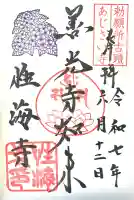 勅願所古蹟
あじさい寺
令和七年
六月十二日
善光寺如来
性海寺